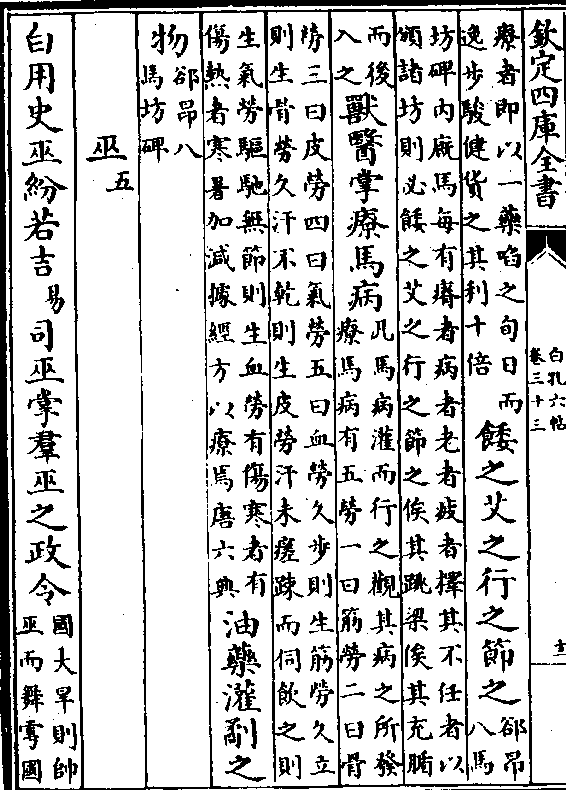 欽定四庫全書
白孔六帖
卷三十三
療者即以一藥啗之旬日而
逸步駿健貨之其利十倍
餧之艾之行之節之
郤昂
八馬
坊碑内廐馬每有瘠者病者老者疲者擇其不任者以
頒諸坊則必餧之艾之行之節之俟其跳梁俟其充腯
而後
入之
獸醫掌療馬病
凡馬病灌而行之觀其病之所發
療馬病有五勞一曰筋勞二曰骨
勞三曰皮勞四曰氣勞五曰血勞久步則生筋勞久立
則生骨勞久汗不乾則生皮勞汗未瘥踈而伺飲之則
生氣勞驅馳無節則生血勞有傷寒者有
傷熱者寒暑加減據經方以療馬唐六典
油藥灌剮之
物
郤昂八
馬坊碑
巫五
白用史巫紛若吉易司巫掌羣巫之政令
國大旱則帥
巫而舞雩國